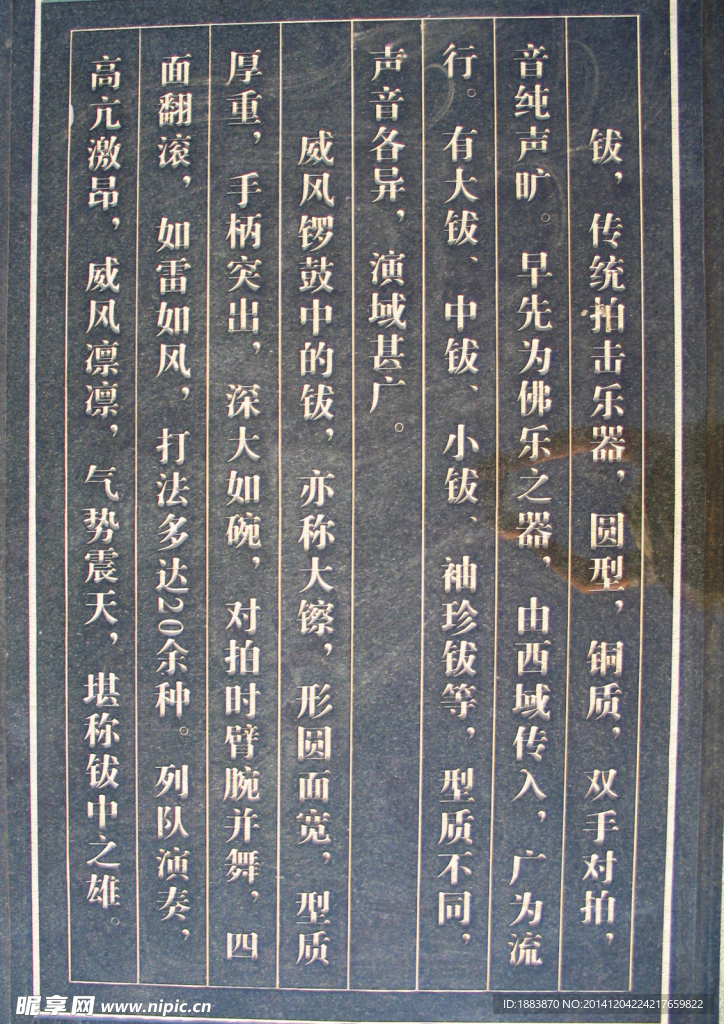 钹，传统拍击乐器，圆型，铜质，双手对拍，
音纯声旷。早先为佛乐之器，由西域传入，广为流
行。有大钹、中钹、小钹、袖珍钹等，型质不同，
声音各异，演域甚广。
威风锣鼓中的钹，亦称大镲，形圆面宽，型质
厚重，手柄突出，深大如碗，对拍时臂腕并舞，四
面翻滚，如雷如风，打法多达20余种。列队演奏，
高亢激昂，威风凛凛，气势震天，堪称钹中之雄。
昵享网 www.nipic.cn
ID:1883870 NO:20141204224217659822